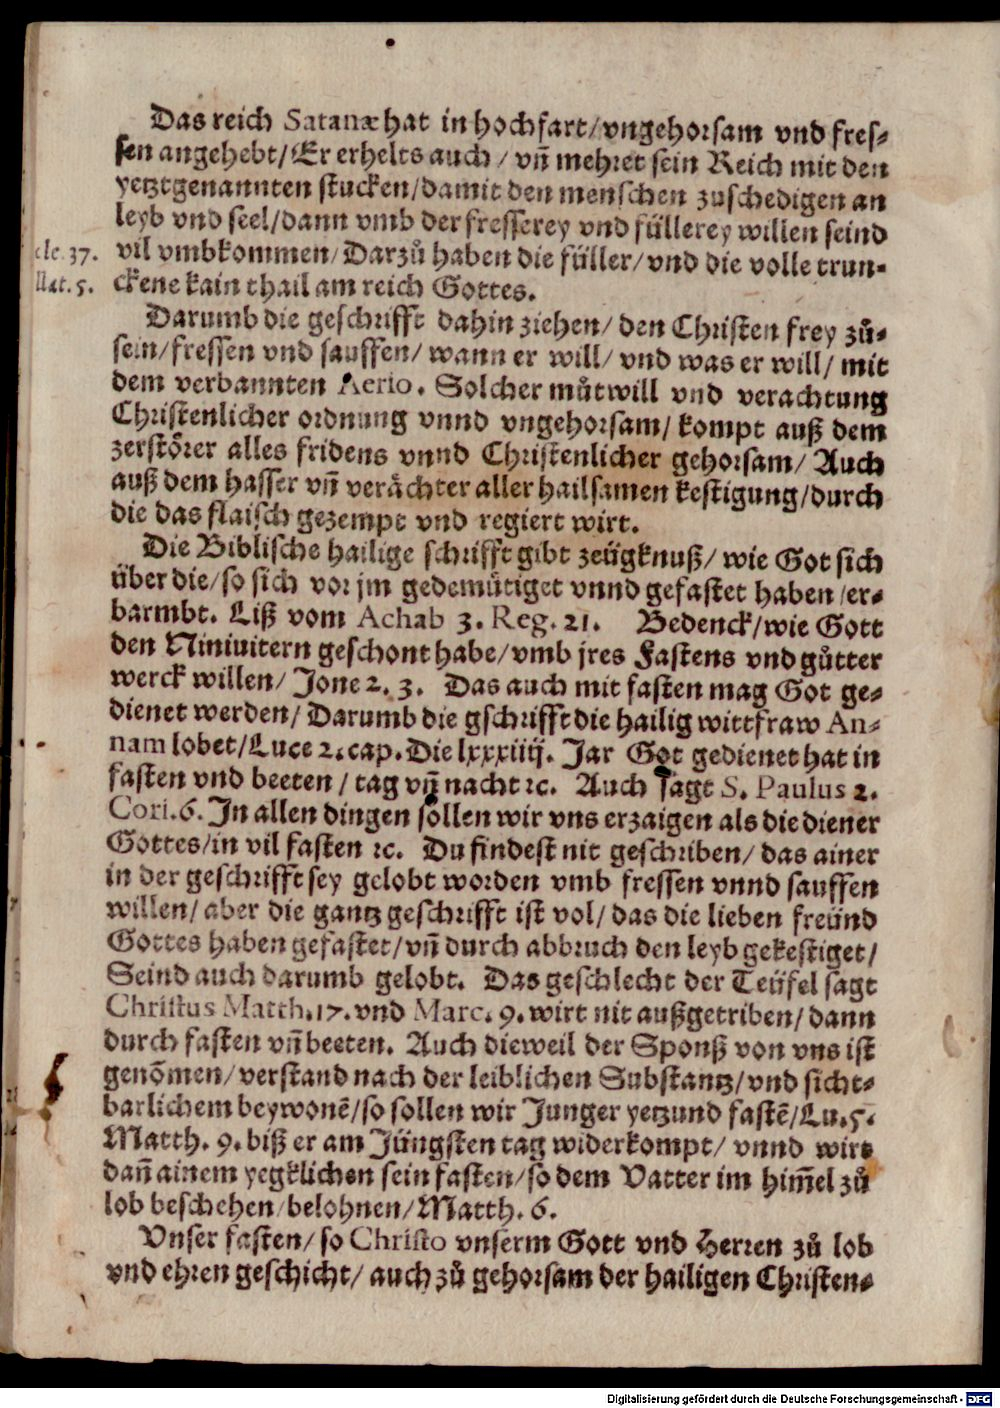 Das reich Satanæ hat in hochfart/vngehorsam vnd fres-
sen angehebt/Er erhelts auch/vnñ mehret sein Reich mit den
yetztgenannten stucken/damit den menschen zuschedigen an
leyb vnd seel/dann vmb der fresserey vnd füllerey willen seind
cle. 37. vil vmbkommen/Darzů haben die füller/vnd die volle trun-
Mat. 5. ckene kain thail am reich Gottes.
Darumb die geschrifft dahin ziehen/den Christen frey zů-
sein/fressen vnd sauffen/wann er will/vnd was er will/mit
dem verbannten Aerio. Solcher můtwill vnd verachtung
Christenlicher ordnung vnnd vngehorsam/kompt auß dem
zerstörer alles fridens vnnd Christenlicher gehorsam/Auch
auß dem hasser vnñ verächter aller hailsamen kestigung/durch
die das flaisch gezempt vnd regiert wirt.
Die Biblische hailige schrifft gibt zeügknuß/wie Got sich
über die/so sich vor jm gedemütiget vnnd gefastet haben/er-
barmbt. Liß vom Achab 3. Reg. 21. Bedenck/wie Gott
den Niniuitern geschont habe/vmb jres Fastens vnd gůtter
werck willen/Jone 2. 3. Das auch mit fasten mag Got ge-
dienet werden/Darumb die gschrifft die hailig wittfraw An-
nam lobet/Luce 2. cap. Die lxxxiiij. Jar Got gedienet hat in
fasten vnd beeten/tag vnñ nacht ꝛc. Auch sagt S. Paulus 2.
Cori. 6. In allen dingen sollen wir vns erzaigen als die diener
Gottes/in vil fasten ꝛc. Du findest nit geschriben/das ainer
in der geschrifft sey gelobt worden vmb fressen vnnd sauffen
willen/aber die gantz geschrifft ist vol/das die lieben freünd
Gottes haben gefastet/vnñ durch abbruch den leyb gekestiget/
Seind auch darumb gelobt. Das geschlecht der Teüfel sagt
Christus Matth. 17. vnd Marc. 9. wirt nit außgetriben/dann
durch fasten vnñ beeten. Auch dieweil der Sponß von vns ist
genõmen/verstand nach der leiblichen Substantz/vnd sicht-
barlichem beywonẽ/so sollen wir Junger yetzund fastẽ/Lu. 5.
Matth. 9. biß er am Jüngsten tag widerkompt/vnnd wirt
dañ ainem yegklichen sein fasten/so dem Vatter im him̃el zů
lob beschehen/belohnen/Matth. 6.
Vnser fasten/so Christo vnserm Gott vnd Herren zů lob
vnd ehren geschicht/auch zů gehorsam der hailigen Christen-
Digitalisierung gefördert durch die Deutsche Forschungsgemeinschaft - DFG